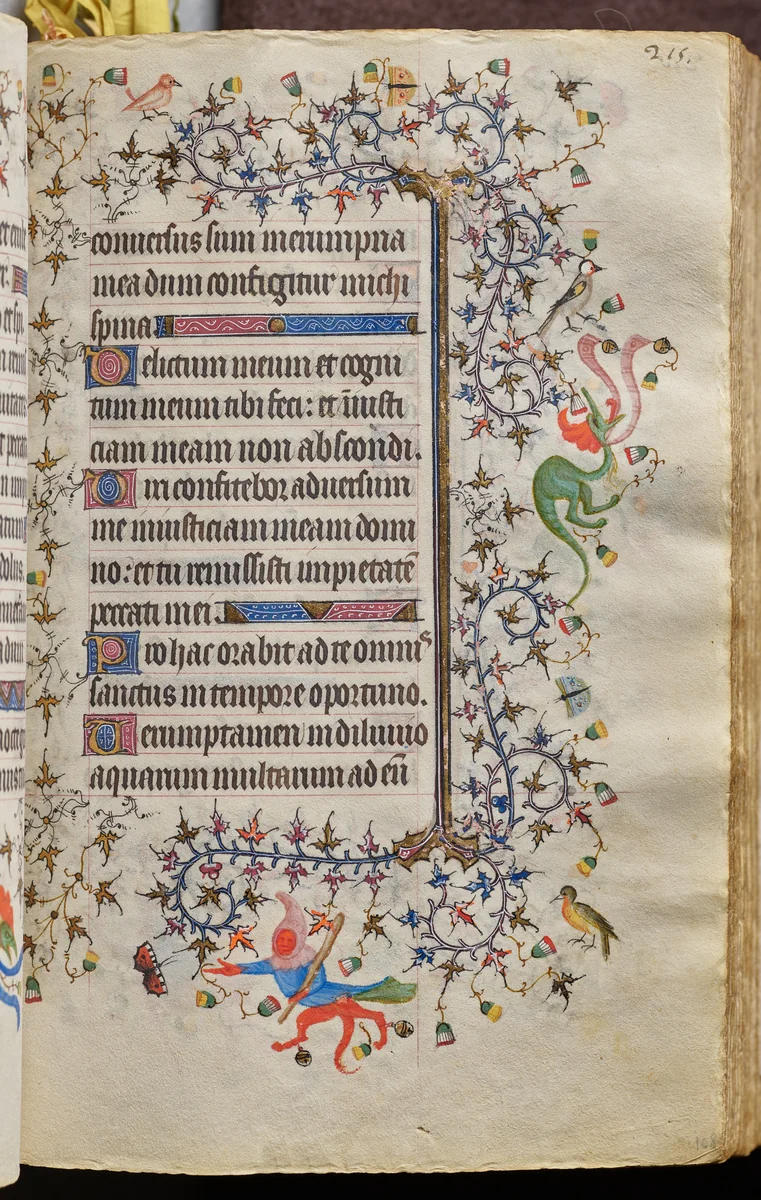 215.
conuersus sum in erumpna
mea dum configitur michi
spina.
Delictum meum et cogni
tum meum tibi feci: et iniusti
ciam meam non abscondi.
Dixi confitebor aduersum
me iniusticiam meam domi
no: et tu remisisti impietatē
peccati mei.
Pro hac orabit ad te omnis
sanctus in tempore oportuno.
Uerumptamen in diluuio
aquarum multarum ad eū
168